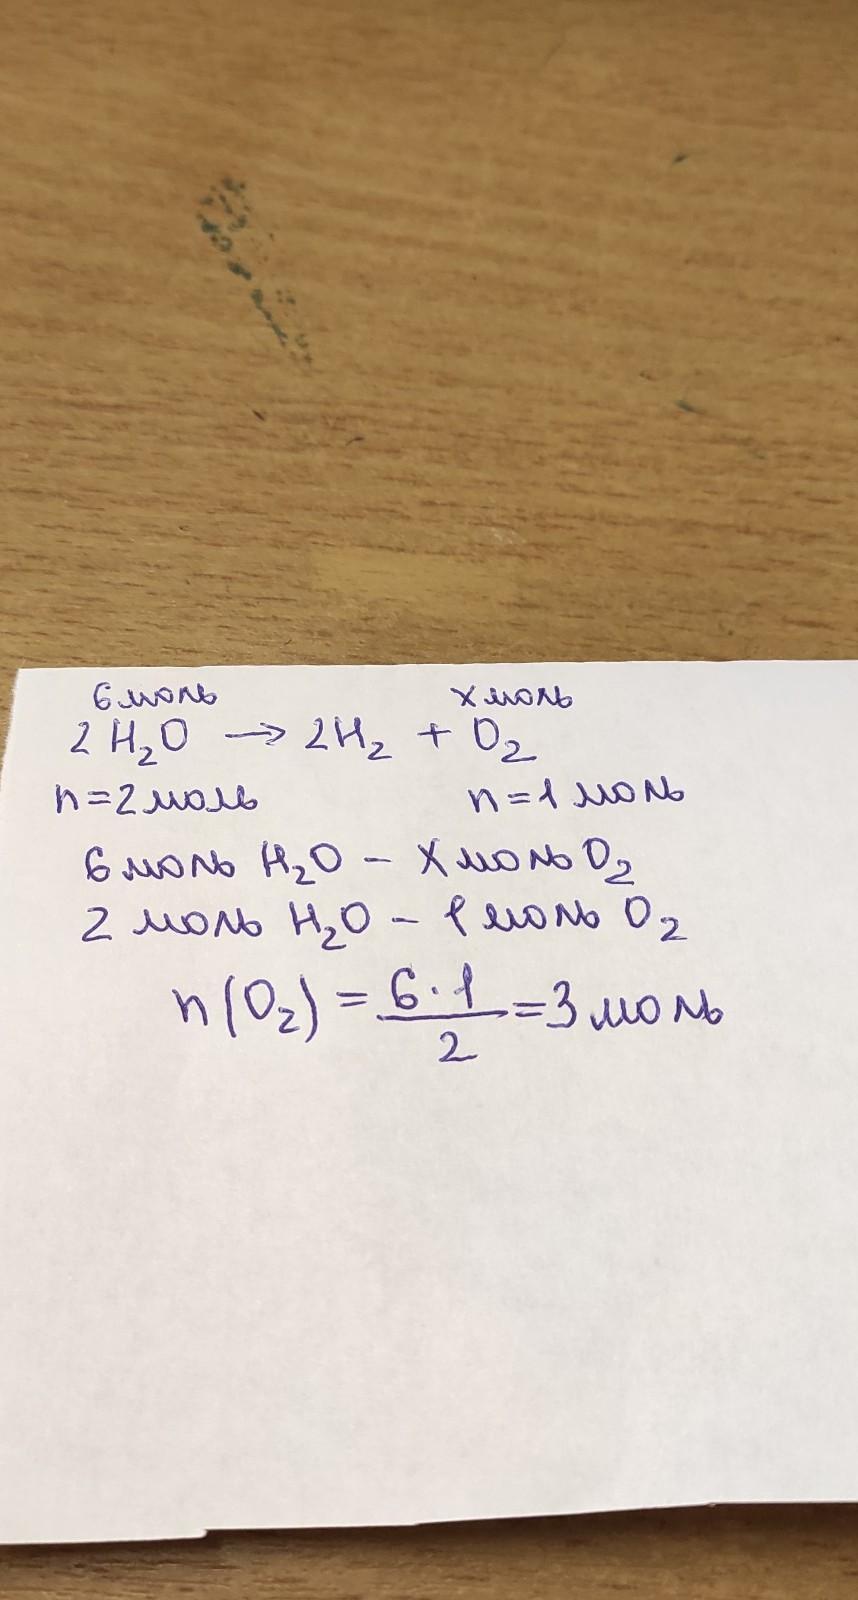 6 моль x моль
2H₂O → 2H₂ + O₂
n=2 моль n=1 моль
6 моль H₂O – x моль O₂
2 моль H₂O – 1 моль O₂
n(O₂) = 6·1/2 = 3 моль